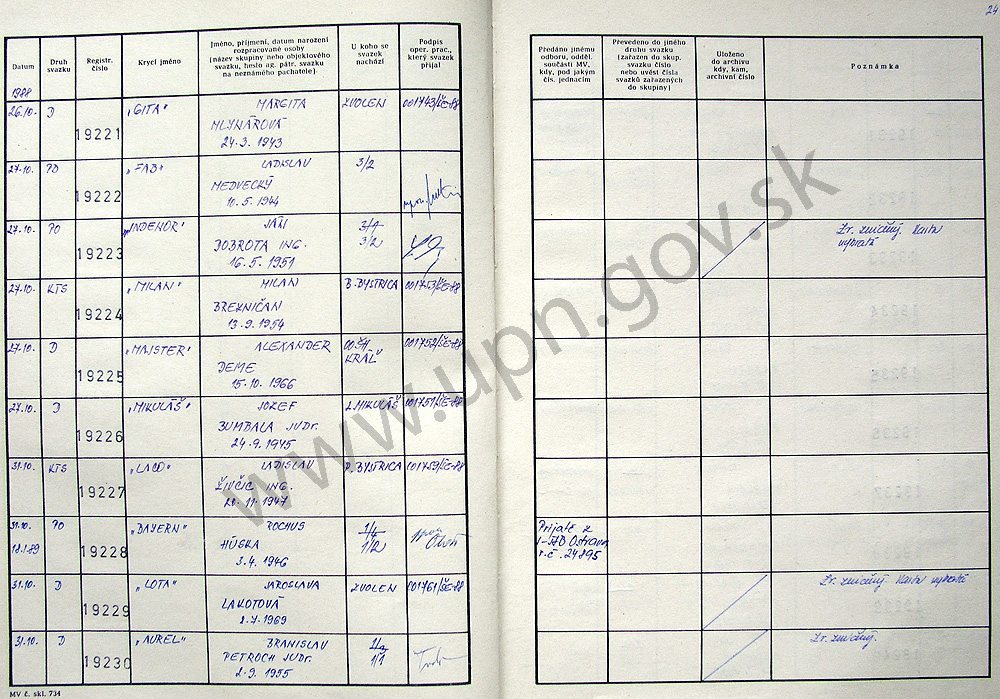 24
Datum
Druh svazku
Registr. číslo
Krycí jméno
Jméno, příjmení, datum narození rozpracované osoby (název skupiny nebo objektového svazku, heslo ag. pátr. svazku na neznámého pachatele)
U koho se svazek nachází
Podpis oper. prac., který svazek přijal
Předáno jinému odboru, odděl. součásti MV, kdy, pod jakým čís. jednacím
Převedeno do jiného druhu svazku (zařazen do skup. svazku číslo nebo uvést čísla svazků zařazených do skupiny)
Uloženo do archivu kdy, kam, archivní číslo
Poznámka
1988
26.10. D 19221 „GITA" MARGITA ZVOLEN 001743/ŠE-88
MLYNÁROVÁ
24.3. 1943
27.10. PO 19222 „FAB" LADISLAV 3/2
MEDVECKÝ
10.5. 1944
27.10. PO 19223 „INDENOR" JÁN 3/1
DOBROTA ING. 3/2
16.5. 1951
Zr. zničený. Karta
vybratá
27.10. KTS 19224 „MILAN" MILAN B. BYSTRICA 001753/ŠE-88
BREKNIČAN
13.9. 1954
27.10. D 19225 „MAJSTER" ALEXANDER 001752/ŠE-88
DEME KRÁĽ
15.10. 1966
27.10. D 19226 „MIKULÁŠ" JOZEF L. MIKULÁŠ 001751/ŠE-88
BUMBALA JUDr.
24.9. 1945
31.10. KTS 19227 „LACO" LADISLAV B. BYSTRICA 001759/ŠE-88
ŽIVČIC ING.
11. 1947
31.10. PO 19228 „BAYERN" ROCHUS 1/4
18.1.89 HÚSKA 1/2
3.4. 1946
Prijaté z
Ostrava
r.č. 24895
31.10. D 19229 „LOTA" JAROSLAVA ZVOLEN 001761/ŠE-88
LAKOTOVÁ
2.7. 1969
Zr. zničený. Karta vybratá
31.10. D 19230 „AUREL" BRANISLAV
PETROCH JUDr. 1/1
2.9. 1955
Zr. zničený.
MV č. skl. 734
www.upn.gov.sk